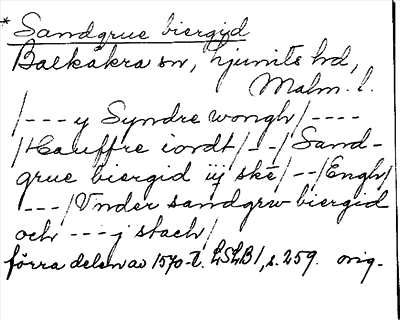 * Sandgrue biergid
Balkåkra sn, Ljunits hd,
Malm. l.
/--- y Syndre wongh/----
/Hauffre iordt/--/Sand-
grue biergid iij skē/--/Engh/
---/Vnder sandgrw biergid
och --- j stach/
förra delen av 1570-t. LSLB1, s. 259. orig-